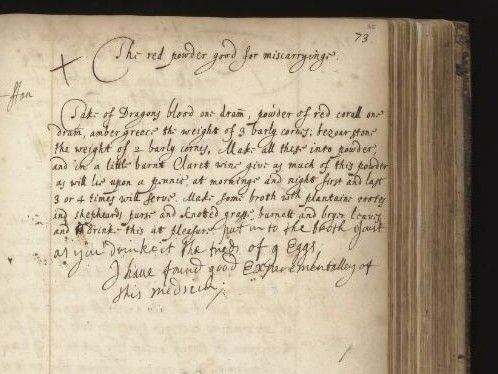 73
The red powder good for miscarryinge.
ffan
Take of Dragons blood one dram, powder of red corall one
dram, ambergreece the weight of 3 barly cornes, bezoar stone
the weight of 2 barly cornes, Make all these into powder,
and in a little burnt Claret wine give as much of this powder
as will lie upon a pennie, at morninge and night first and last
3 or 4 times will serve. Make some broth with plantaine rootes
and shepheards purse and knotted grasse, burnett and leaves
and drinke this at pleasure put into the broth Just
as you drinke it the treds of 9 Eggs,
I have found good Experementalley of
this medicin